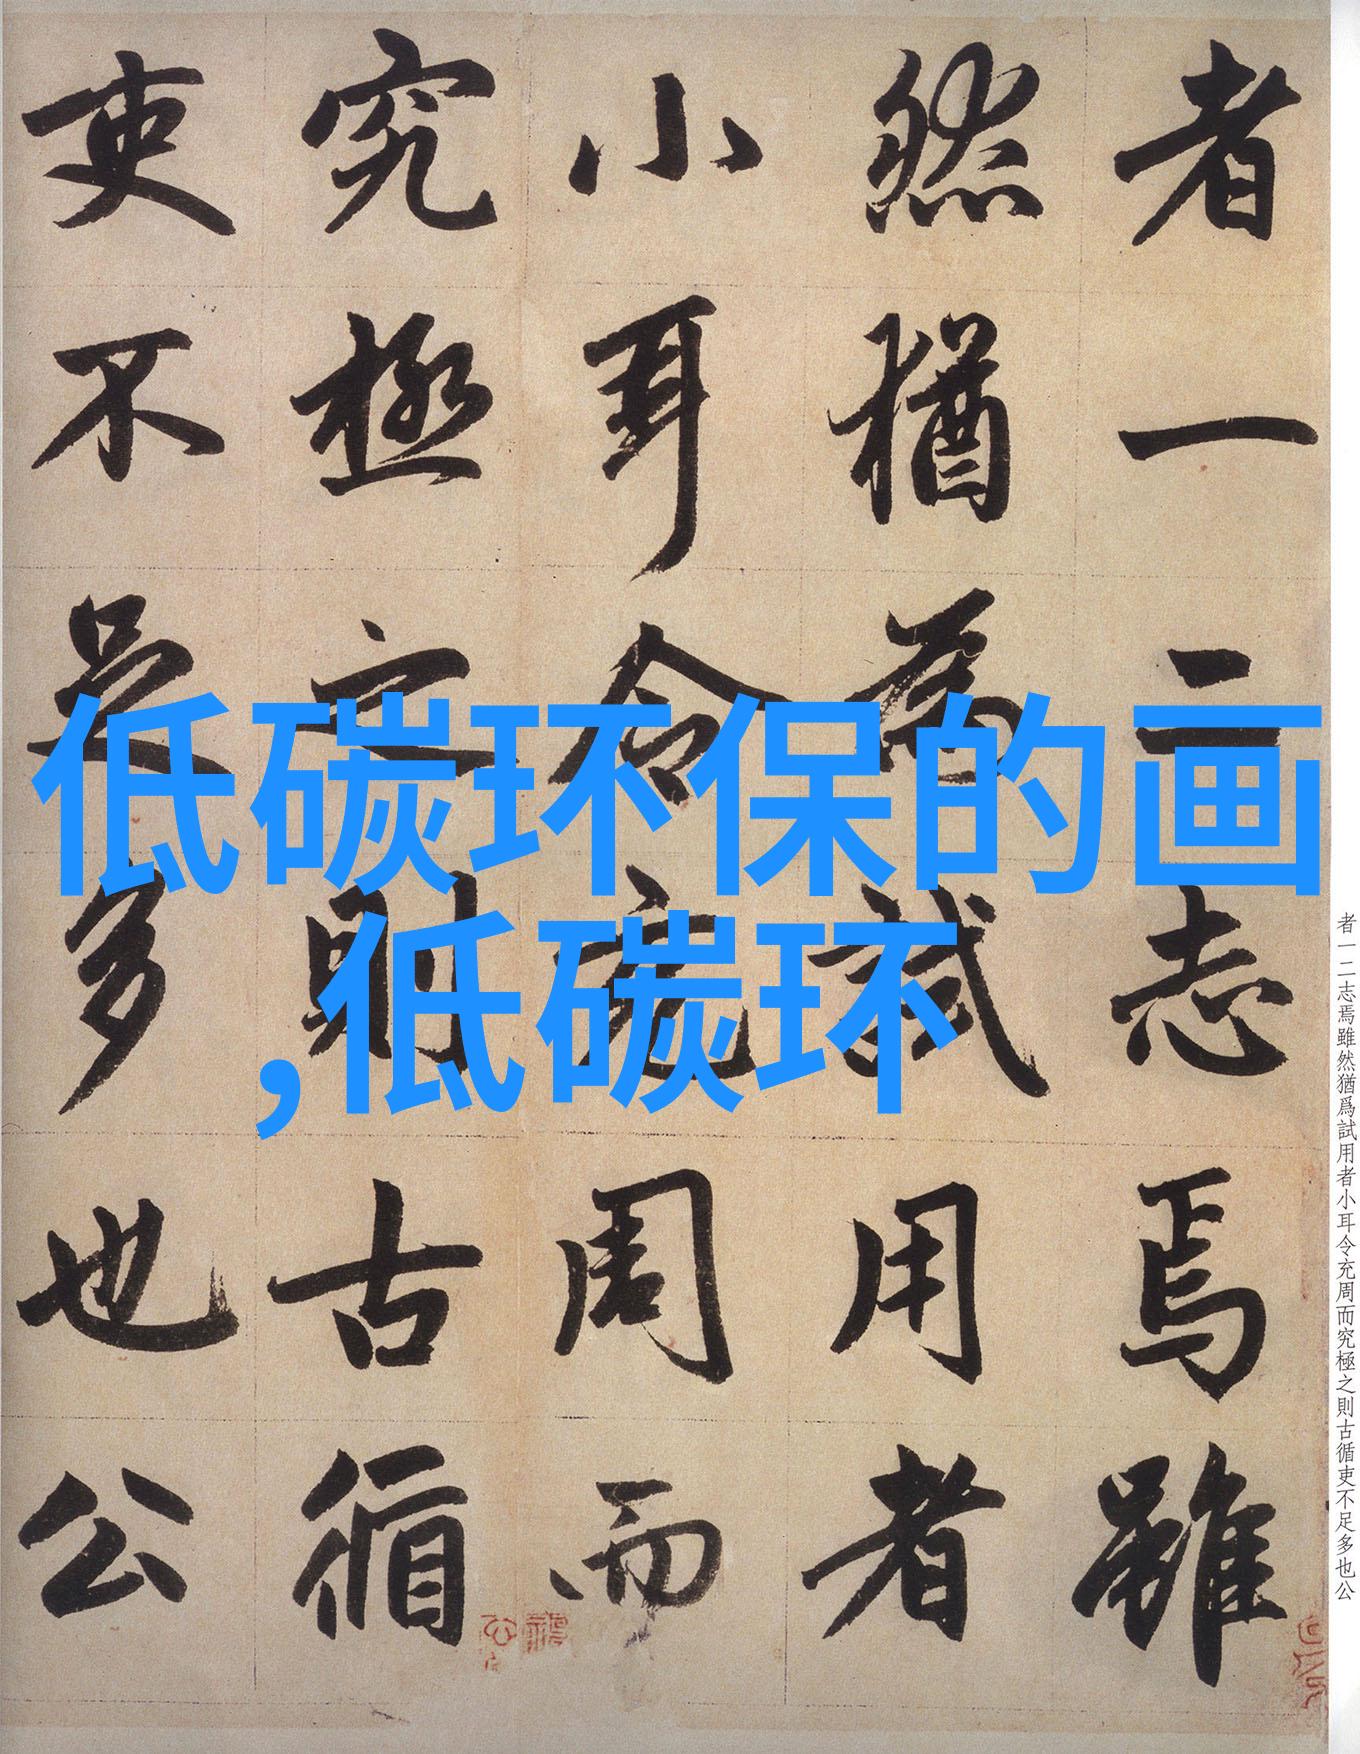 者一二志焉雖
然猶為試用者
小耳令充周而
究極之則古循
吏不足多也公
低碳环保的画
,低碳环
者一二志焉雖然猶爲試用者小耳令充周而究極之則古循吏不足多也公